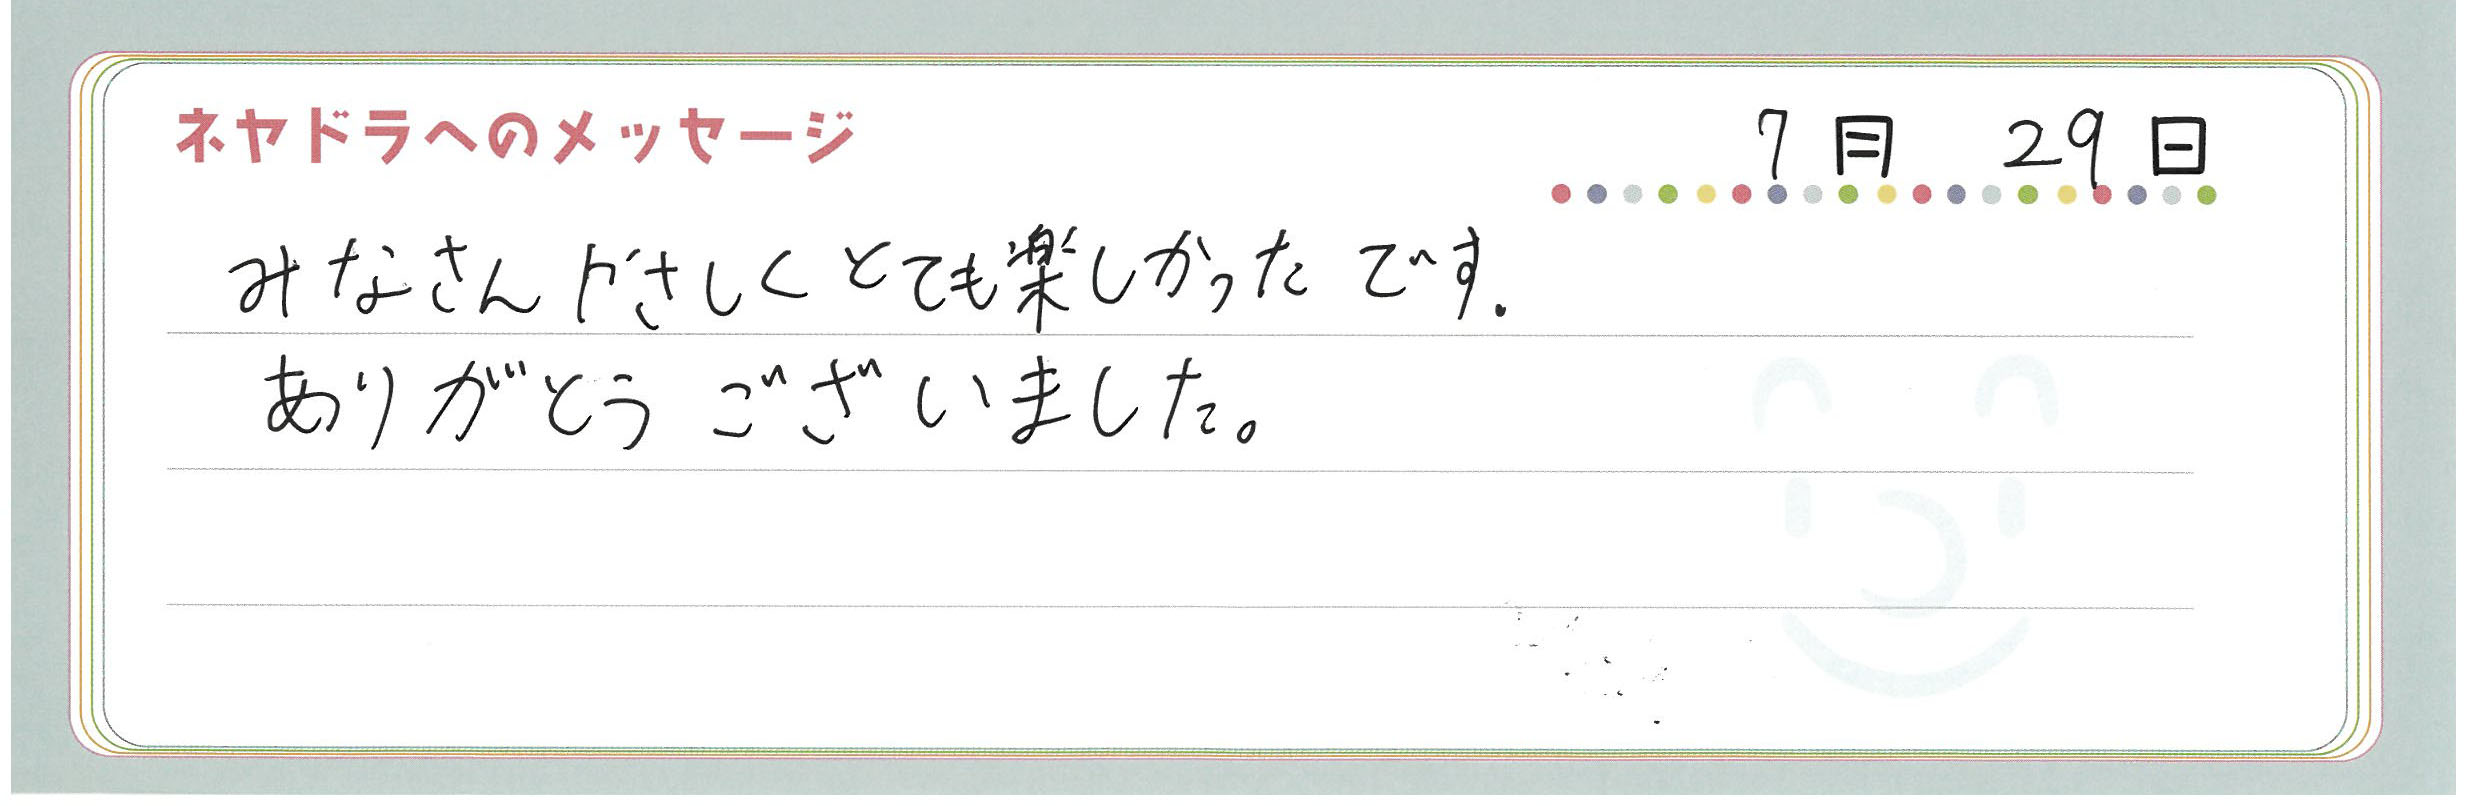 ネヤドラへのメッセージ
7月 29日
みなさんやさしくとても楽しかったです.
ありがとうございました。